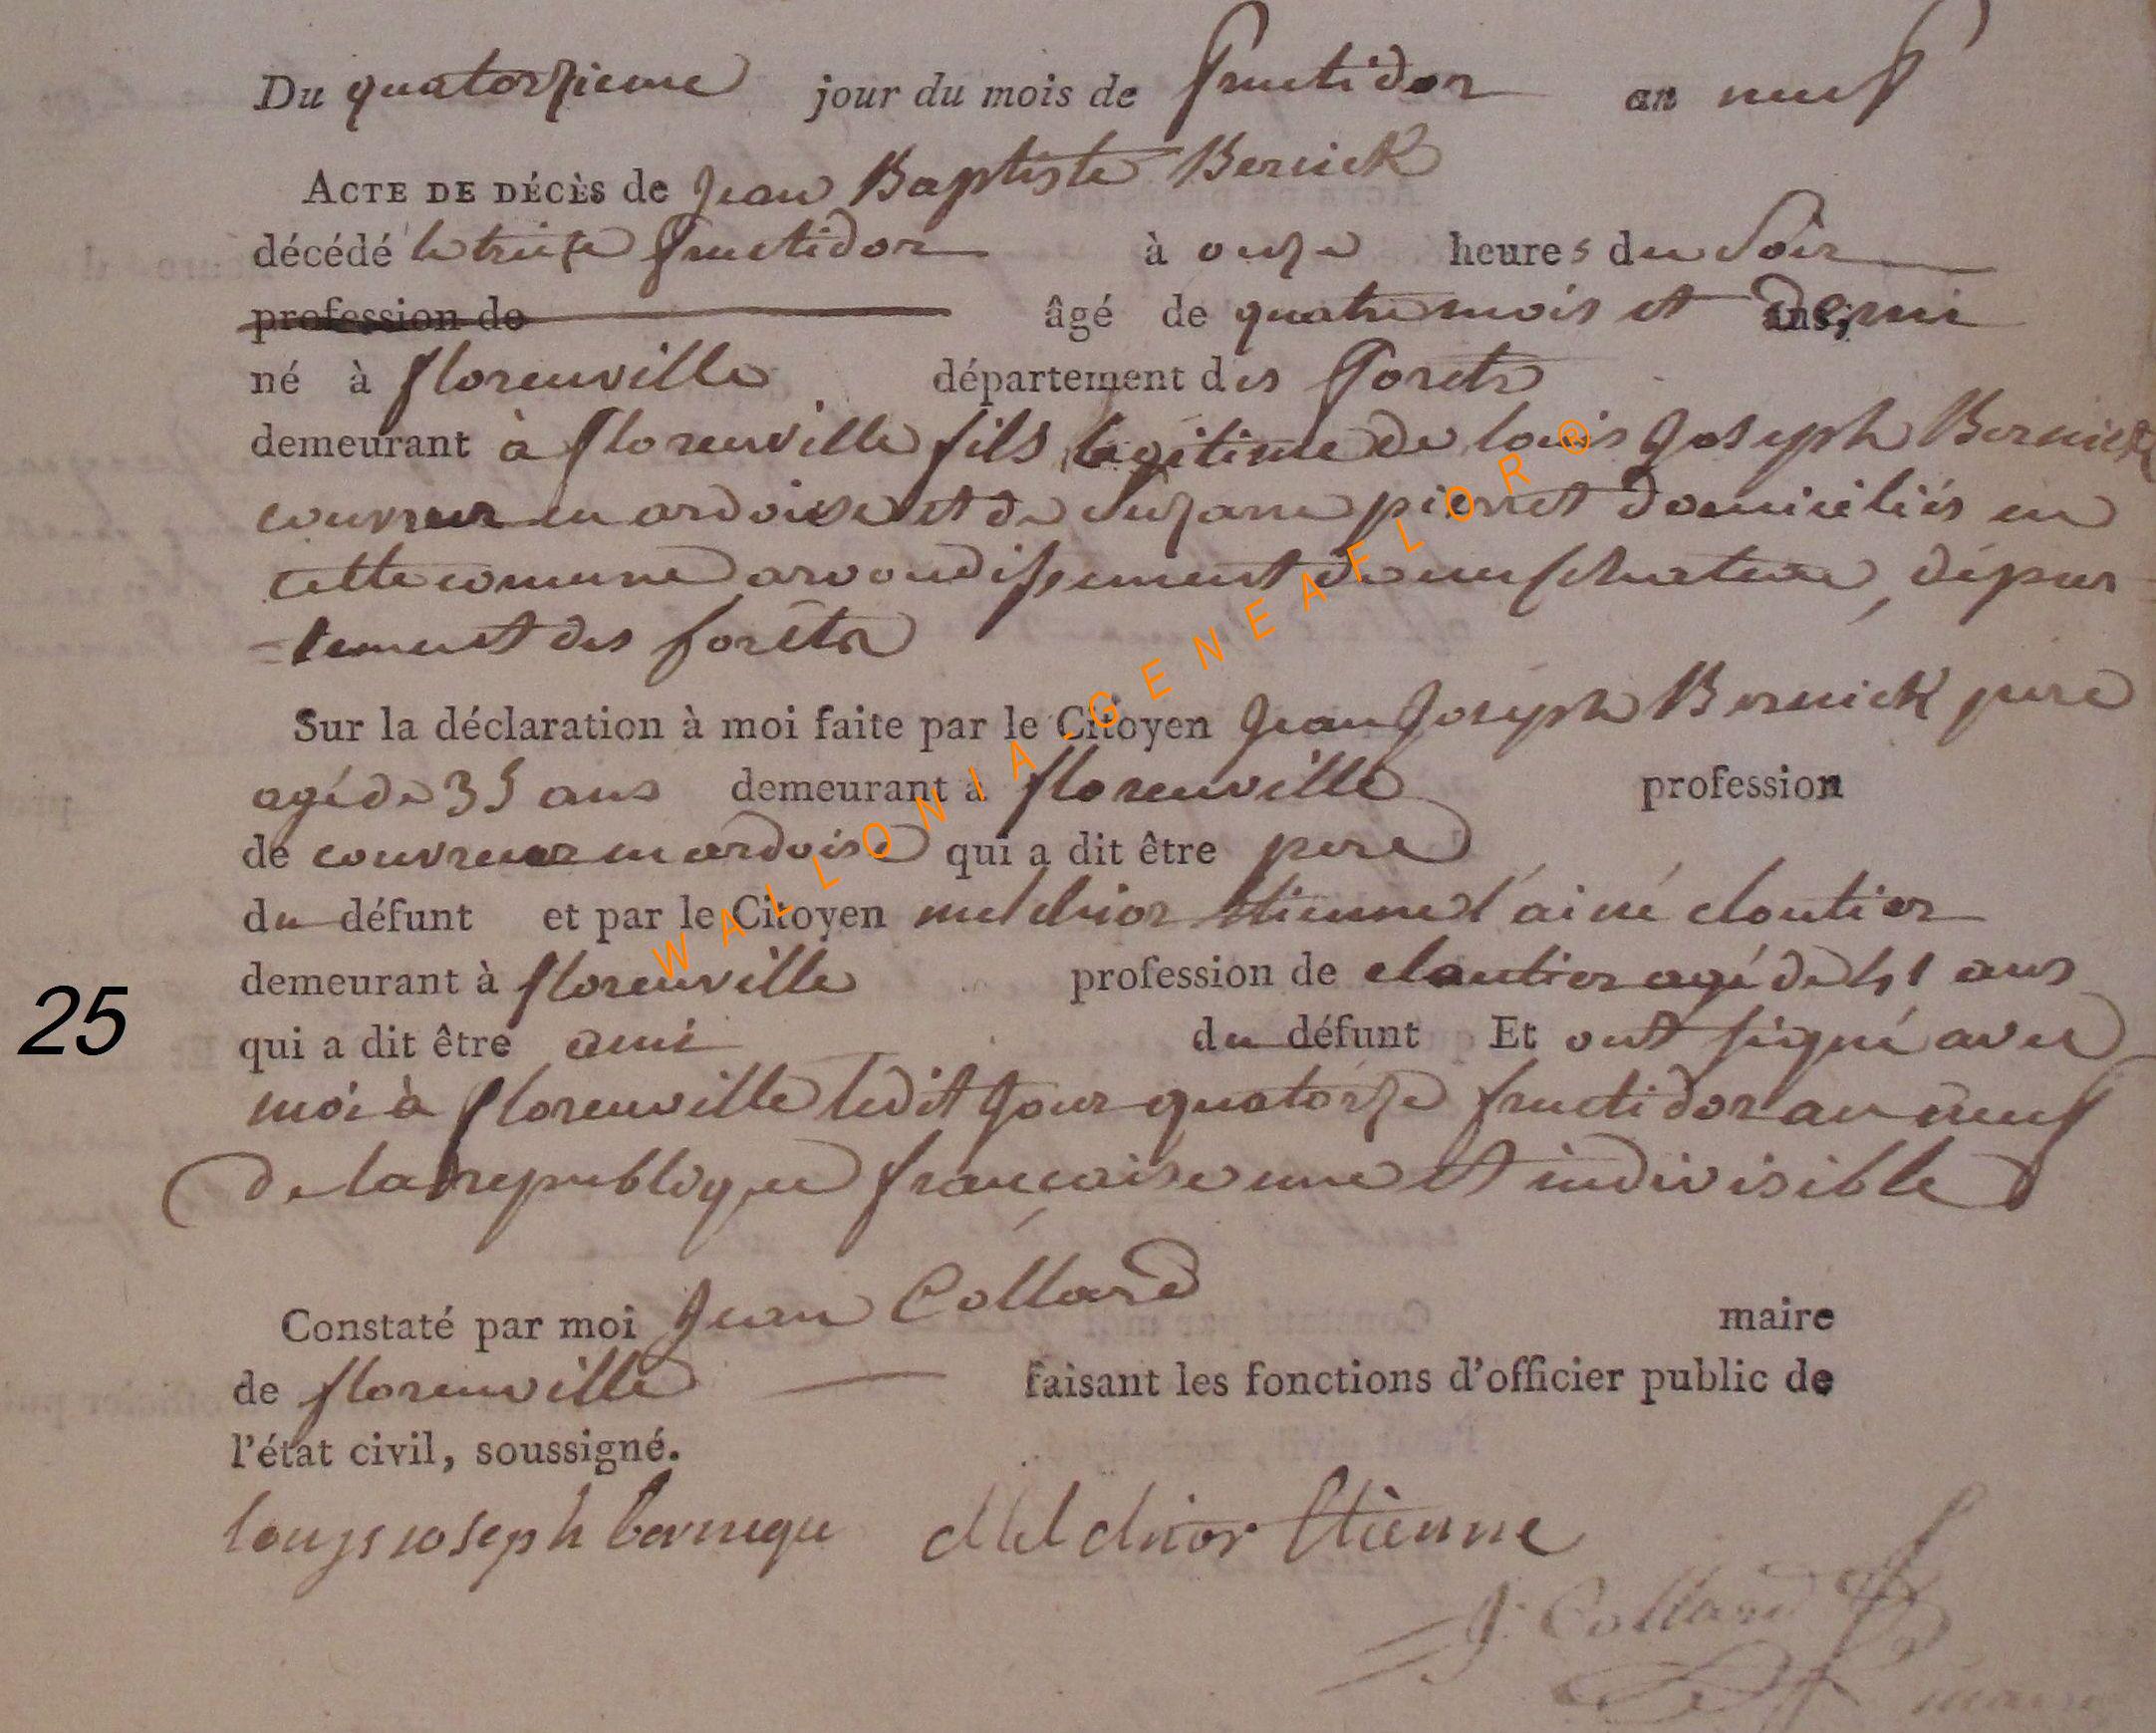 Du quatorzieme jour du mois de fructidor an neuf
ACTE DE DÉCÈS de Jean Baptiste Bernick
décédé le treize fructidor à onze heures du Soir
profession de âgé de quatre mois et demi ans,
né à florenville département des forets
demeurant à florenville fils legitime de louis Joseph Bernick
couvreur en ardoise et de Suzane pierret domiciliés en
cette comune arrondissement de neufchateau, dépar
=tement des forêts
Sur la déclaration à moi faite par le Citoyen Jean Joseph Bernick pere
agé de 35 ans demeurant à florenville profession
de couvreur en ardoise qui a dit être pere
du défunt et par le Citoyen melchior Etienne l'ainé cloutier
demeurant à florenville profession de cloutier agé de 41 ans
25
qui a dit être ami du défunt Et ont signé avec
moi à florenville ledit Jour quatorze fructidor an neuf
de la republique française une et indivisible
Constaté par moi Jean Collard maire
de florenville faisant les fonctions d'officier public de
l'état civil, soussigné.
louys ioseph bernique Melchior Etienne
J. Collard
maire
WALLONIA-GENEAFLOR®